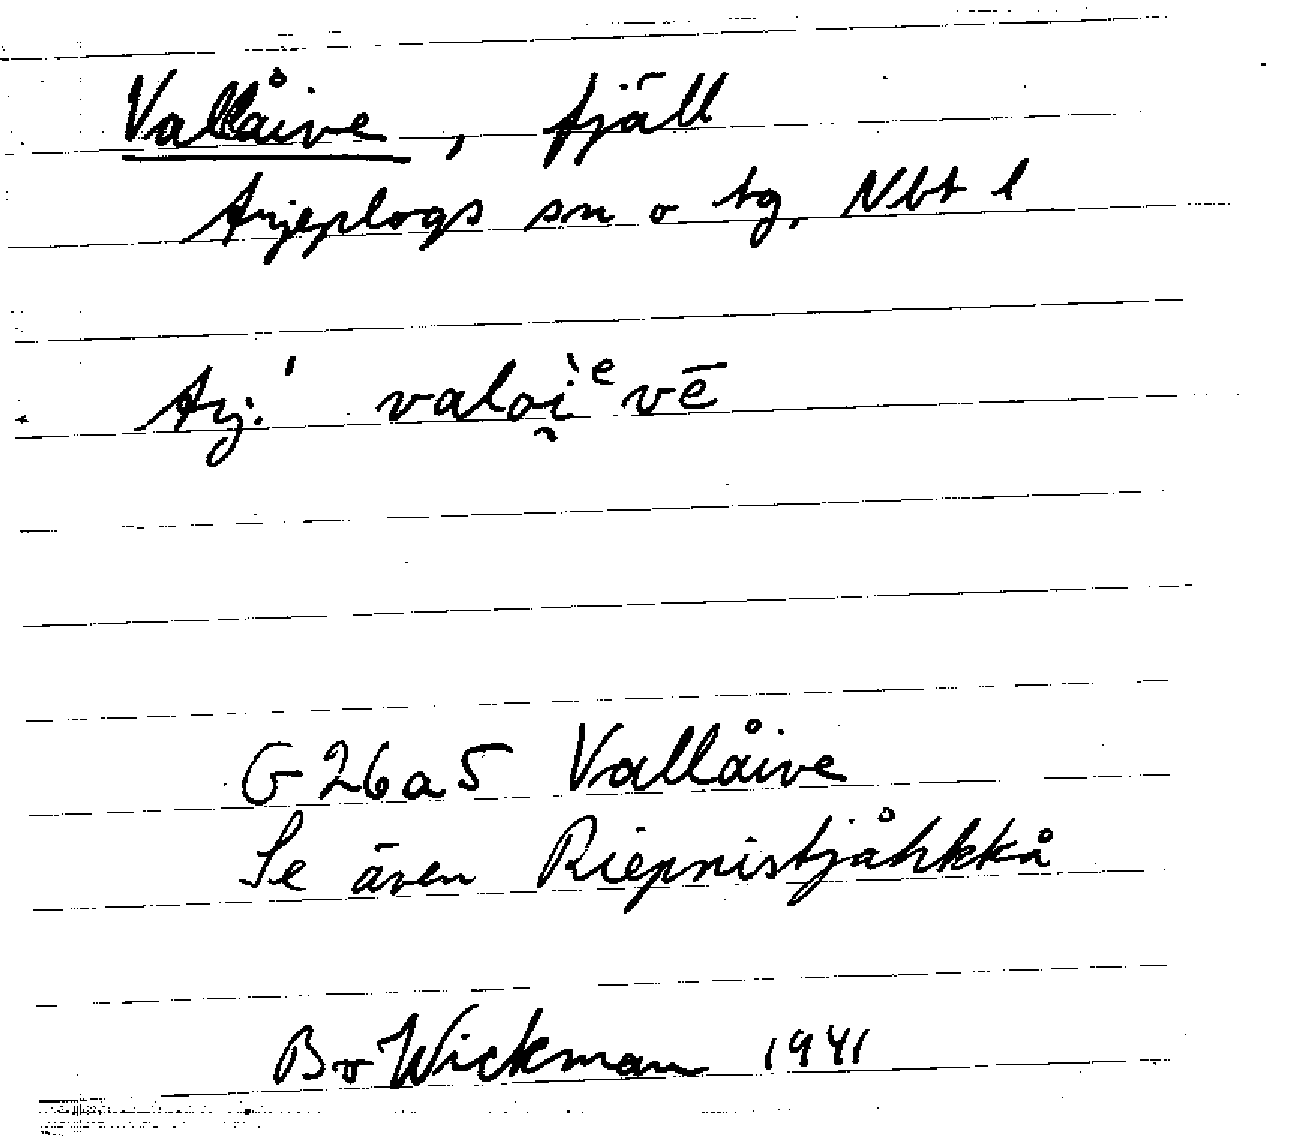 Vallåive, fjäll
Arjeplogs sn o tg, Nbt l
Arj. ˈvaloì̯ᵉvē
G 26 a 5 Vallåive
Se även Riepnistjåhkkå
Bo Wickman 1941